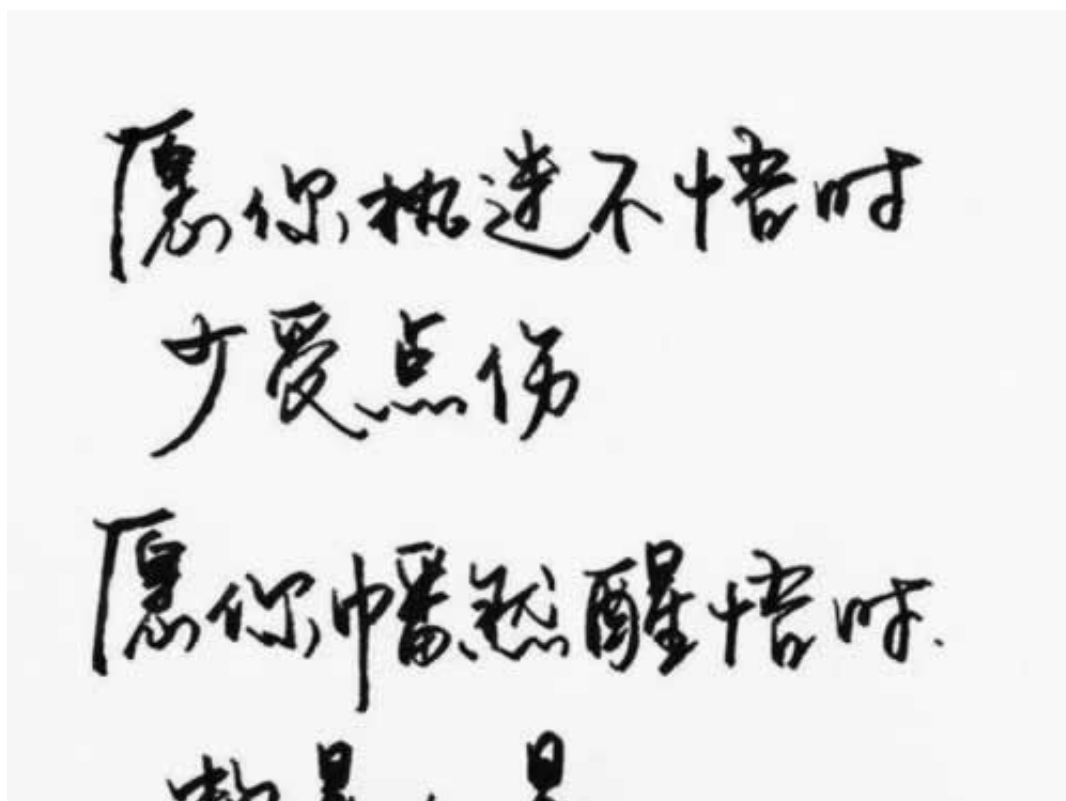 愿你执迷不悟时
少受点伤
愿你幡然醒悟时.